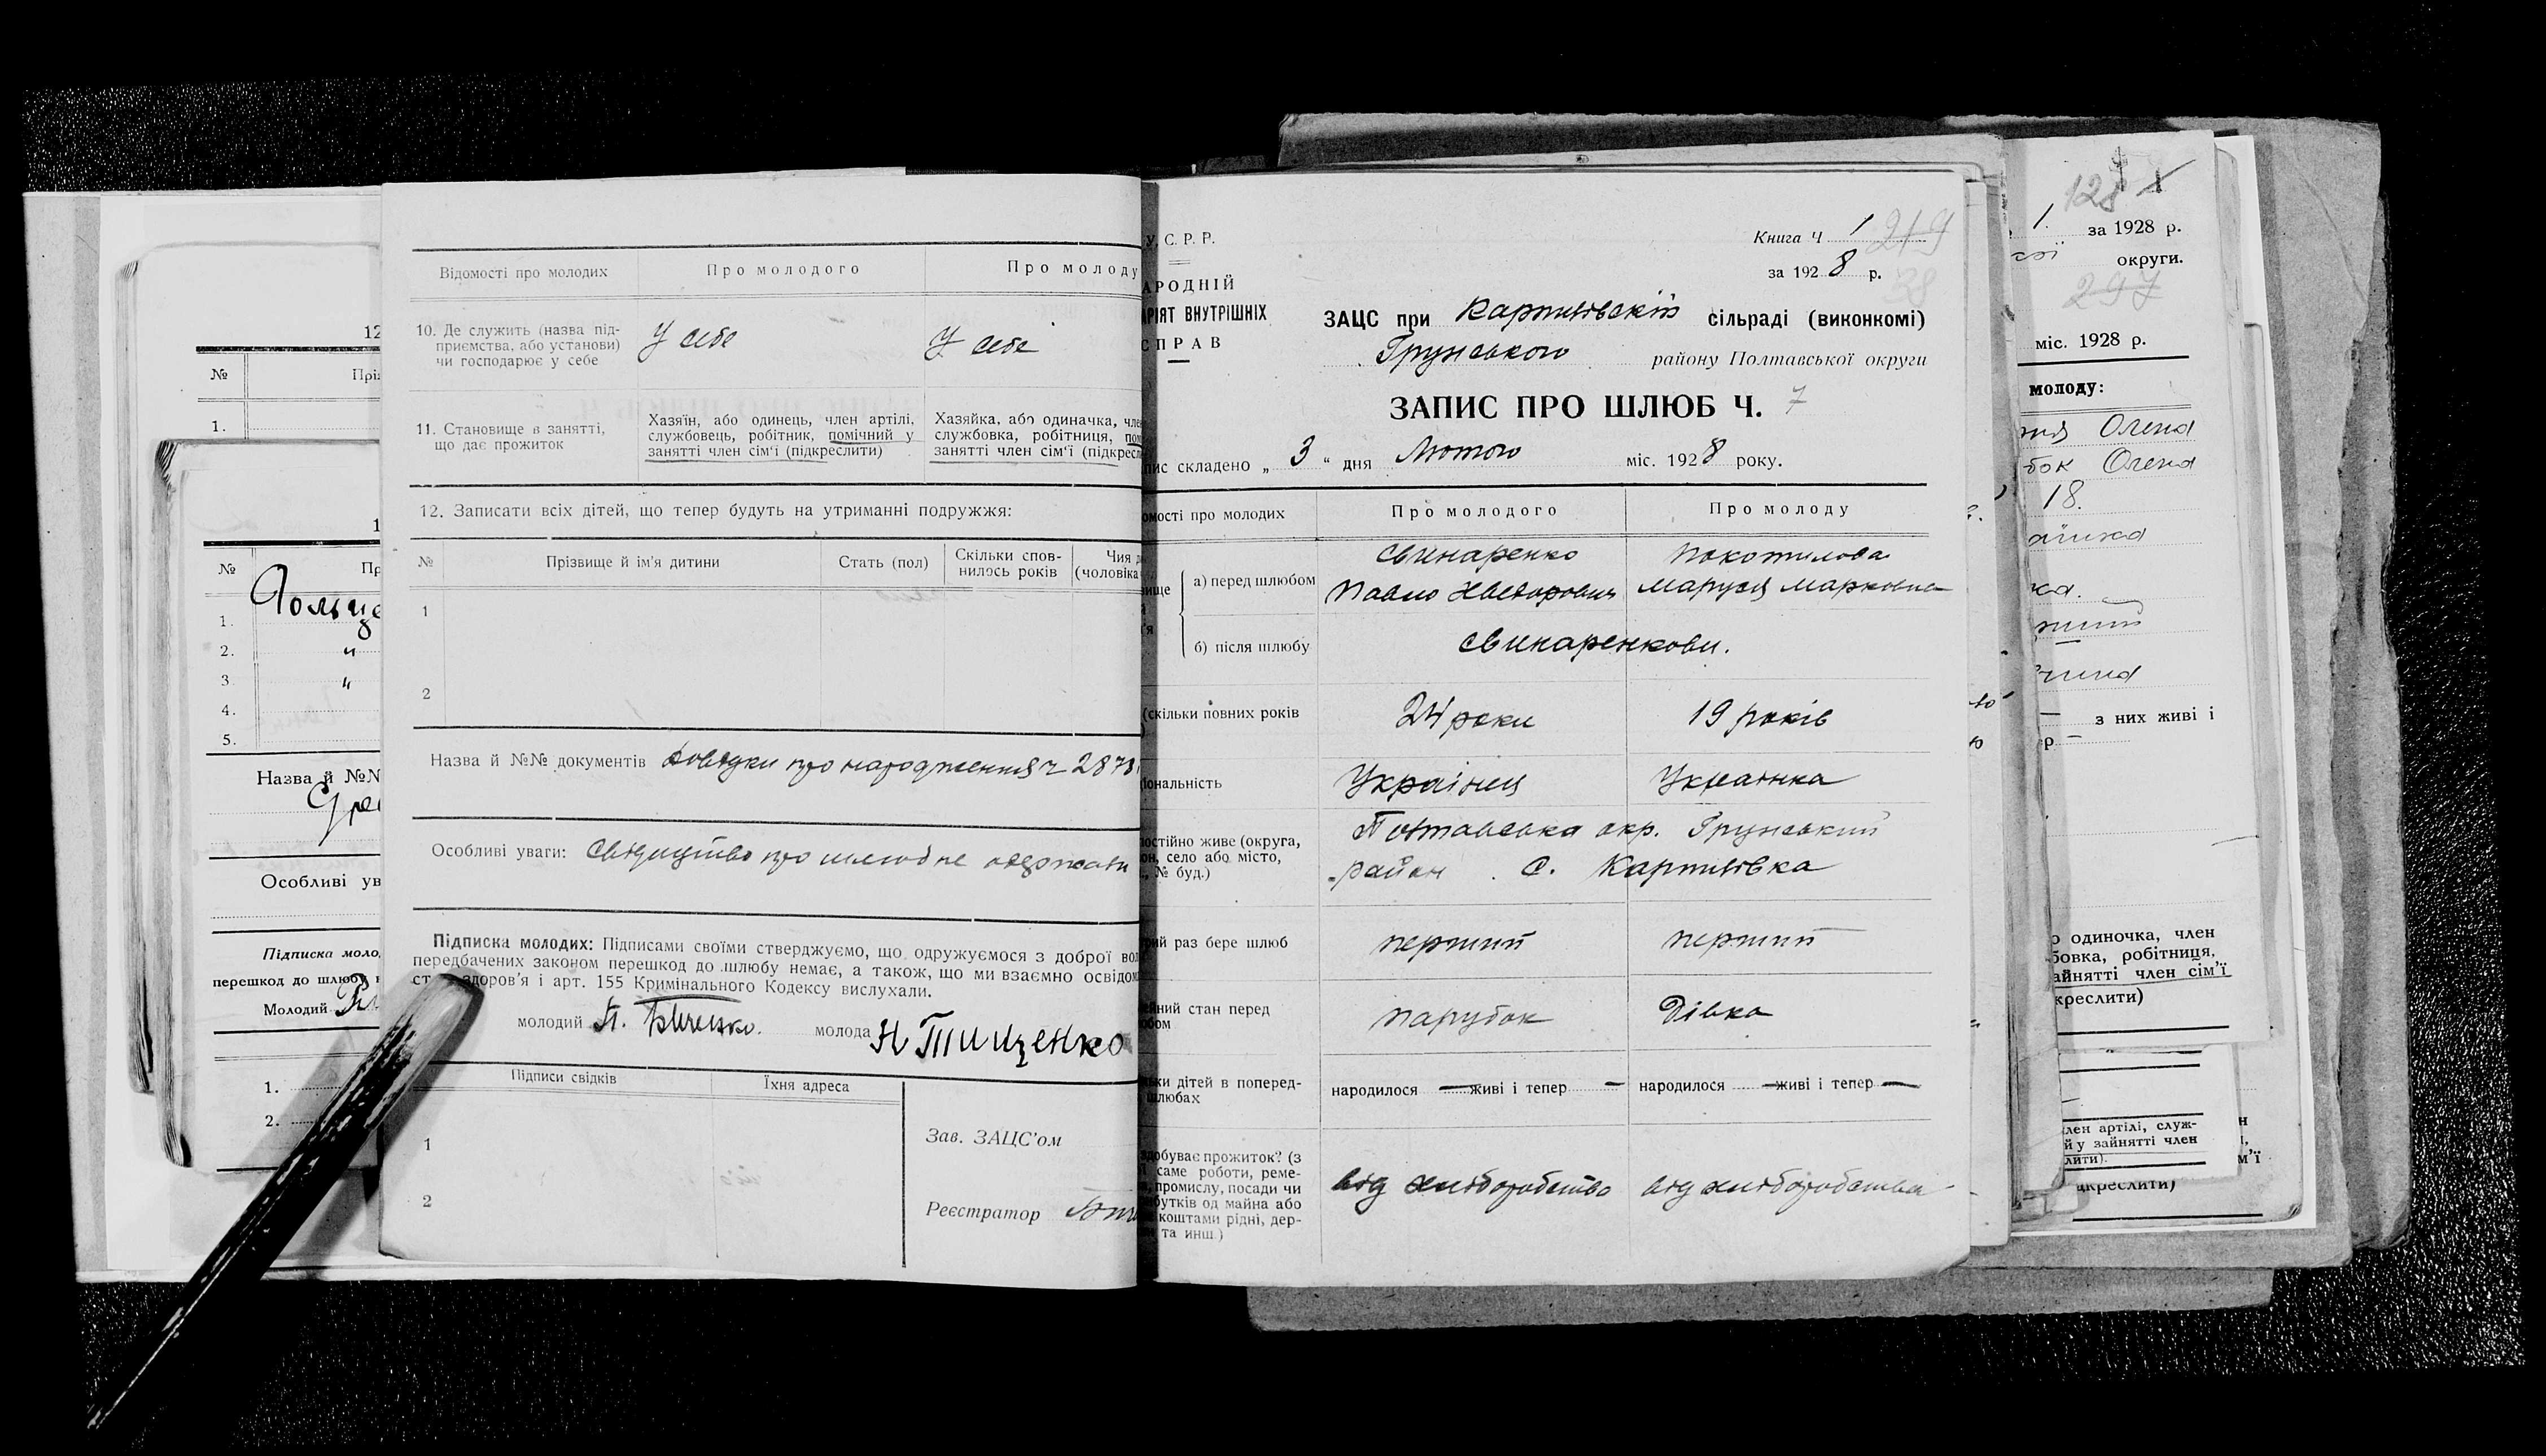 12
№
Прі
1.
1
№
Пр
1.
2. "
3 "
4.
5.
Назва й №№
Особливі ув
Підписка моло
перешкод до шлюбу н
Молодий
1.
2.
Відомості про молодих
Про молодого
Про молоду
10. Де служить (назва під-
приємства, або установи)
чи господарює у себе
У себе
У себе
11. Становище в занятті,
що дає прожиток
Хазяїн, або одинець, член артілі,
службовець, робітник, помічний у
занятті член сім'ї (підкреслити)
Хазяйка, або одиначка, чле
службовка, робітниця, пом
занятті член сім'ї (підкресл
12. Записати всіх дітей, що тепер будуть на утриманні подружжя:
№
Прізвище й ім'я дитини
Стать (пол)
Скільки спов-
нилось років
Чия д
(чоловіка
1
2
Назва й №№ документів Довідки про народження ч 2878
Особливі уваги: Свідуцтво про шлюб не одержали
Підписка молодих: Підписами своїми стверджуємо, що одружуємося з доброї вол
передбачених законом перешкод до шлюбу немає, а також, що ми взаємно освідом
ст здоров'я і арт. 155 Кримінального Кодексу вислухали.
молодий П.
молода Н Тищенко
Підписи свідків
Їхня адреса
1
2
Зав. ЗАЦС'ом
Реєстратор
У. С. Р. Р.
АРОДНІЙ
АРІЯТ ВНУТРІШНІХ
СПРАВ
Книга Ч 1
219
за 1928 р.
38
ЗАЦС при Карпилівскій сільраді (виконкомі)
Грунського району Полтавської округи
ЗАПИС ПРО ШЛЮБ Ч. 7
пис складено „ 3 " дня Лютого міс. 1928 року.
омості про молодих
Про молодого
Про молоду
вище
'я
а) перед шлюбом
Свинаренко
Павло Нвесторович
Покотилова
Маруся Марковна
б) після шлюбу
Свинаренкови.
(скільки повних років
24 роки
19 років
іональність
Українец
Українка
постійно живе (округа,
он, село або місто,
., № буд.)
Полтавська окр. Грунський
район с. Карпилівка
рий раз бере шлюб
перший
перший
ейний стан перед
юбом
парубок
Дівка
льки дітей в поперед-
шлюбах
народилося — живі і тепер —
народилося — живі і тепер —
здобуває прожиток? (з
ї саме роботи, реме-
, промислу, посади чи
бутків од майна або
коштами рідні, дер-
та инш.)
від хліборобство
від хліборобства
128
1. за 1928 р.
сої округи.
297
міс. 1928 р.
молоду:
Олена
бок Олена
18.
з них живі і
р —
о одиночка, член
бовка, робітниця,
айнятті член сім'ї
креслити)
лен артілі, служ-
й у зайнятті член
лити).
м'ї
дкреслити)